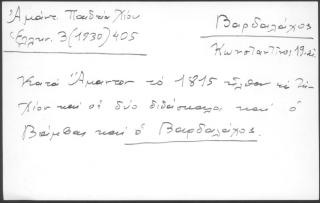 Ἀμάντ. Παιδεία Χίου
Ἑλλην. 3 (1930) 405
Βαρδαλάχος
Κωνσταντῖνος 19 αἰ.
Κατὰ Ἄμαντον τὸ 1815 ἦλθον εἰς τὴν
Χίον καὶ οἱ δύο διδάσκαλοι καὶ ὁ
Βάμβας καὶ ὁ Βαρδαλάχος.